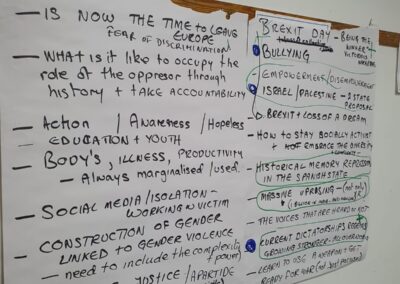 — IS NOW THE TIME to LEAVE
EUROPE
FEAR OF DISCRIMINATION
— WHAT IS it LIKE to OCCUPY the
role of the oppresor through
history + take ACCOUNTABILITY
— Action / Awareness / Hopeless
EDUCATION + YOUTH
— BODY'S, ILLNESS, PRODUCTIVITY
— Always marginalised / used.
— SOCIAL MEDIA / ISOLATION —
WORKING VICTIM
— CONSTRUCTION OF GENDER
LINKED to GENDER VIOLENCE
— need to include the complexity
+ power
JUSTICE / APARTIDE
BREXIT DAY
— BEING THE
BULLYING
EMPOWERMENT / DISEMPOWERMENT
ISRAEL / PALESTINE — 2 STATE
PROPOSAL
BREXIT + LOSS OF A DREAM
— HOW TO STAY SOCIALLY ACTIVE +
EMBRACE THE
— HISTORICAL MEMORY REPRESSION
IN THE SPANISH STATE
— MASSIVE UPRISING — (not only)
— THE VOICES THAT ARE HEARD OR NOT
CURRENT DICTATORSHIPS
GROWING STRONGER — ALL OVER
— LEARN TO USE A WEAPON + GET
READY FOR WAR (not just